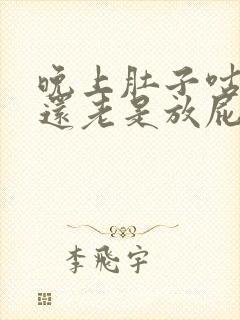 晚上肚子咕
還老是放屁
李飛宇